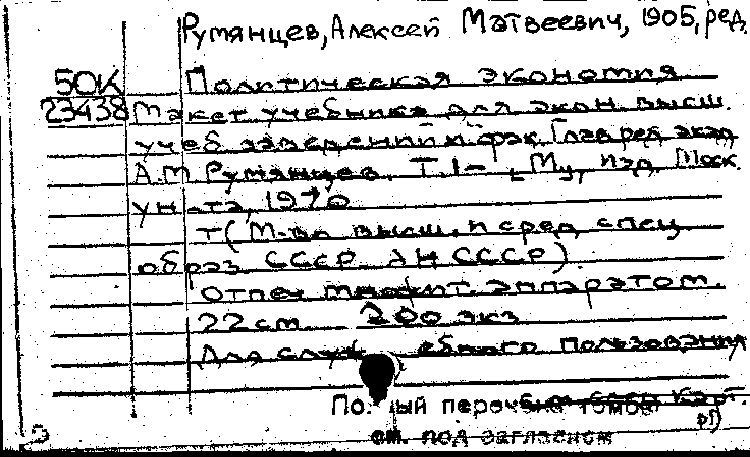 Румянцев, Алексей Матвеевич, 1905, ред.
50К Политическая экономия
23438 Макет учебника для экон. высш.
учеб. заведений и фак. Глав. ред. акад.
А.М. Румянцев. Т. 1- , М., изд. Моск.
ун-та, 1970
т (М-во высш. и сред. спец.
образ. СССР. АН СССР).
Отпеч. множит. аппаратом.
22 см. 200 экз.
Для служебного пользования
По. ный перечень томов карт.
см. под заглавием